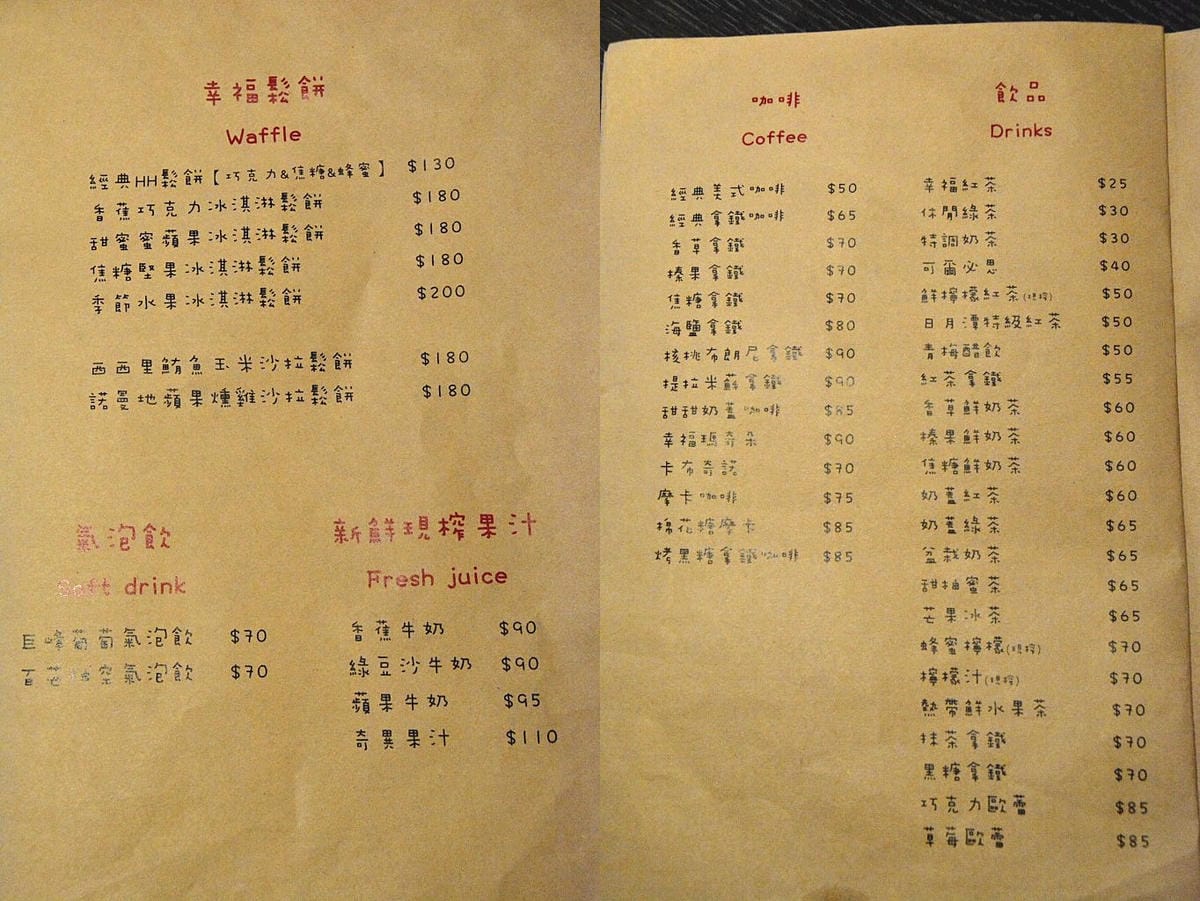 幸福鬆餅
Waffle
經典HH鬆餅【巧克力&焦糖&蜂蜜】 $130
香蕉巧克力冰淇淋鬆餅 $180
甜蜜蜜蘋果冰淇淋鬆餅 $180
焦糖堅果冰淇淋鬆餅 $180
季節水果冰淇淋鬆餅 $200
西西里鮪魚玉米沙拉鬆餅 $180
諾曼地蘋果燻雞沙拉鬆餅 $180
氣泡飲
Soft drink
巨峰葡萄氣泡飲 $70
氣泡飲 $70
新鮮現榨果汁
Fresh juice
香蕉牛奶 $90
綠豆沙牛奶 $90
蘋果牛奶 $95
奇異果汁 $110
咖啡
Coffee
經典美式咖啡 $50
經典拿鐵咖啡 $65
香草拿鐵 $70
榛果拿鐵 $70
焦糖拿鐵 $70
海鹽拿鐵 $80
核桃布朗尼拿鐵 $90
提拉米蘇拿鐵 $90
甜甜奶蓋咖啡 $85
幸福瑪奇朵 $90
卡布奇諾 $70
摩卡咖啡 $75
棉花糖摩卡 $85
烤黑糖拿鐵咖啡 $85
飲品
Drinks
幸福紅茶 $25
休閒綠茶 $30
特調奶茶 $30
可爾必思 $40
鮮檸檬紅茶(現榨) $50
日月潭特級紅茶 $50
青梅醋飲 $50
紅茶拿鐵 $55
香草鮮奶茶 $60
榛果鮮奶茶 $60
焦糖鮮奶茶 $60
奶蓋紅茶 $60
奶蓋綠茶 $65
盆栽奶茶 $65
甜柚蜜茶 $65
芒果冰茶 $65
蜂蜜檸檬(現榨) $70
檸檬汁(現榨) $70
熱帶鮮水果茶 $70
抹茶拿鐵 $70
黑糖拿鐵 $70
巧克力歐蕾 $85
草莓歐蕾 $85